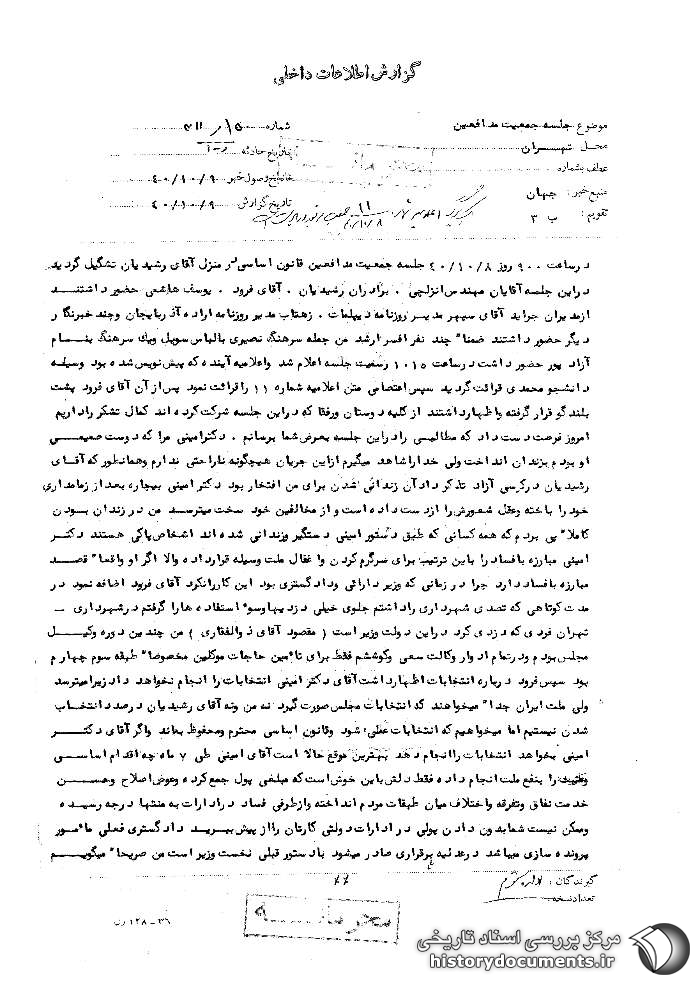 گزارش اطلاعات داخلی
موضوع جلسه جمعیت مدافعین
شماره
محل تهران
تاریخ حادثه
عطف بشماره
تاریخ وصول خبر ۴۰/۱۰/۹
منبع خبر: جهان
تاریخ گزارش ۴۰/۱۰/۹
تقویم: ب ۳
در ساعت ۹۰۰ روز ۴۰/۱۰/۸ جلسه جمعیت مدافعین قانون اساسی در منزل آقای رشیدیان تشکیل گردید
در این جلسه آقایان مهندس انزلچی . برادران رشیدیان . آقای فرود . یوسف هاشمی حضور داشتند
از مدیران جراید آقای سپهر مدیر روزنامه دیپلمات . زهتاب مدیر روزنامه اراده آذربایجان و چند خبرنگار
دیگر حضور داشتند ضمنا" چند نفر افسر ارشد من جمله سرهنگ نصیری بالباس سویل ویک سرهنگ بنام
آزاد پور حضور داشت در ساعت ۱۰۱۵ رسمیت جلسه اعلام شد واعلامیه آینده که پیش نویس شده بود وسیله
دانشجو محمدی قرائت گردید سپس اعتصامی متن اعلامیه شماره ۱۱ را قرائت نمود پس از آن آقای فرود پشت
بلندگو قرار گرفته واظهار داشتند از کلیه دوستان ورفقا که در این جلسه شرکت کرده اند کمال تشکر را داریم
امروز فرصت دست داد که مطالبی را در این جلسه بعرض شما برسانم . دکتر امینی مرا که دوست صمیمی
او بودم بزندان انداخت ولی خدا را شاهد میگیرم از این جریان هیچگونه ناراحتی ندارم وهمانطور که آقای
رشیدیان در کرسی آزاد تذکر داد آن زندانی شدن برای من افتخار بود دکتر امینی بیچاره بعد از زمامداری
خود را باخته وعقل شعورش را از دست داده است و از مخالفین خود سخت میترسد من در زندان بودن
کاملا" پی بردم که همه کسانی که طبق دستور امینی دستگیر وزندانی شده اند اشخاص پاکی هستند دکتر
امینی مبارزه با فساد را باین ترتیب برای سرگرم کردن و اغفال ملت وسیله قرار داده والا اگر او واقعا" قصد
مبارزه با فساد دارد چرا در زمانی که وزیر دارائی ودادگستری بود این کار را نکرد آقای فرود اضافه نمود در
مدت کوتاهی که تصدی شهرداری را داشتم جلوی خیلی دزدیها وسو' استفاده ها را گرفتم در شهرداری –
تهران فردی که دزدی کرد در این دولت وزیر است ( مقصود آقای ذوالفقاری ) من چندین دوره وکیل
مجلس بودم ودر تمام ادوار وکالت سعی وکوششم فقط برای تامین حاجات موکلین مخصوصا" طبقه سوم چهارم
بود سپس فرود درباره انتخابات اظهار داشت آقای دکتر امینی انتخابات را انجام نخواهد داد زیرا میترسد
ولی ملت ایران جدا" میخواهند که انتخابات مجلس صورت گیرد نه من ونه آقای رشیدیان درصدد انتخاب
شدن نیستیم اما میخواهیم که انتخابات عملی شود وقانون اساسی محترم ومحفوظ بماند واگر آقای دکتر
امینی بخواهد انتخابات را انجام دهد بهترین موقع حالا است آقای امینی طی ۷ ماه چه اقدام اساسی
را بنفع ملت انجام داده فقط دلش باین خوش است که مبلغی پول جمع کرده وعوض اصلاح وحسن
خدمت نفاق وتفرقه واختلاف میان طبقات مردم انداخته وازطرفی فساد در ادارات به منتها درجه رسیده
وممکن نیست شما بدون دادن پولی در ادارات دولتی کارتان را از پیش ببرید دادگستری فعلی مامور
پرونده سازی میباشد در عدلیه هر قراری صادر میشود با دستور قبلی نخست وزیر است من صریحا" میگویم
گیرندگان:
تعداد نسخه
محرمانه
۳۶–۱۲۸
مرکز بررسی اسناد تاریخی
historydocuments.ir